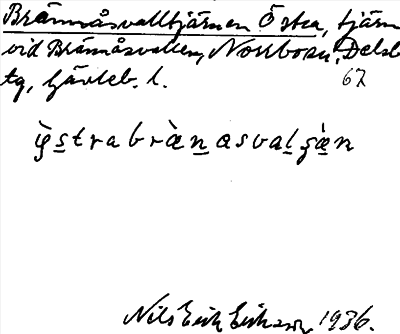 Brännåsvalltjärnen Östra, tjärn
vid Brännåsvallen, Norrbosn, Delsb
tg, Gävleb. l. 67
ỳstrabrànasvalʂæ̀n
Nils Erik Eriksson 1936.